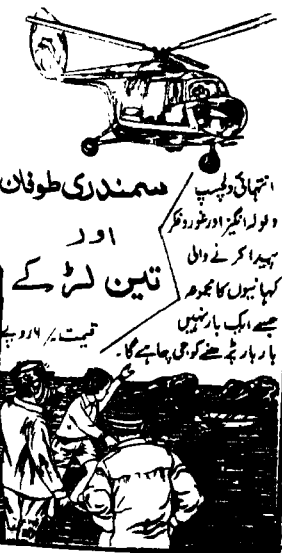 سمندری طوفان
اور
تین لڑکے
انتہائی دلچسپ
ولولہ انگیز اور غور و فکر
پیدا کرنے والی
کہانیوں کا مجموعہ
جسے ایک بار نہیں
بار بار پڑھنے کو جی چاہے گا۔
قیمت ۶/- روپے